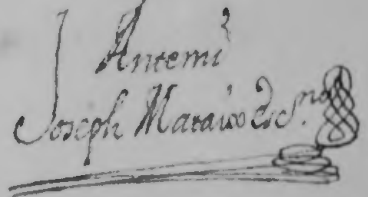 Antemi
Joseph Mataix es.no